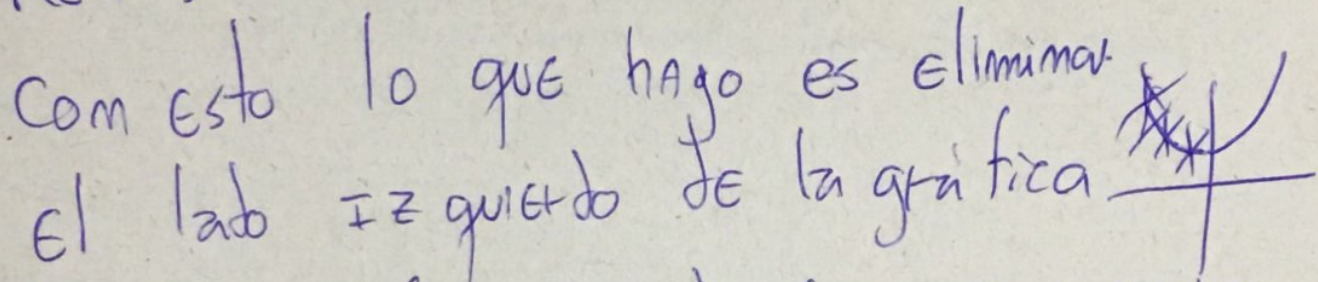 Con Esto lo que hago es Eliminar
El lado Izquierdo de la gráfica